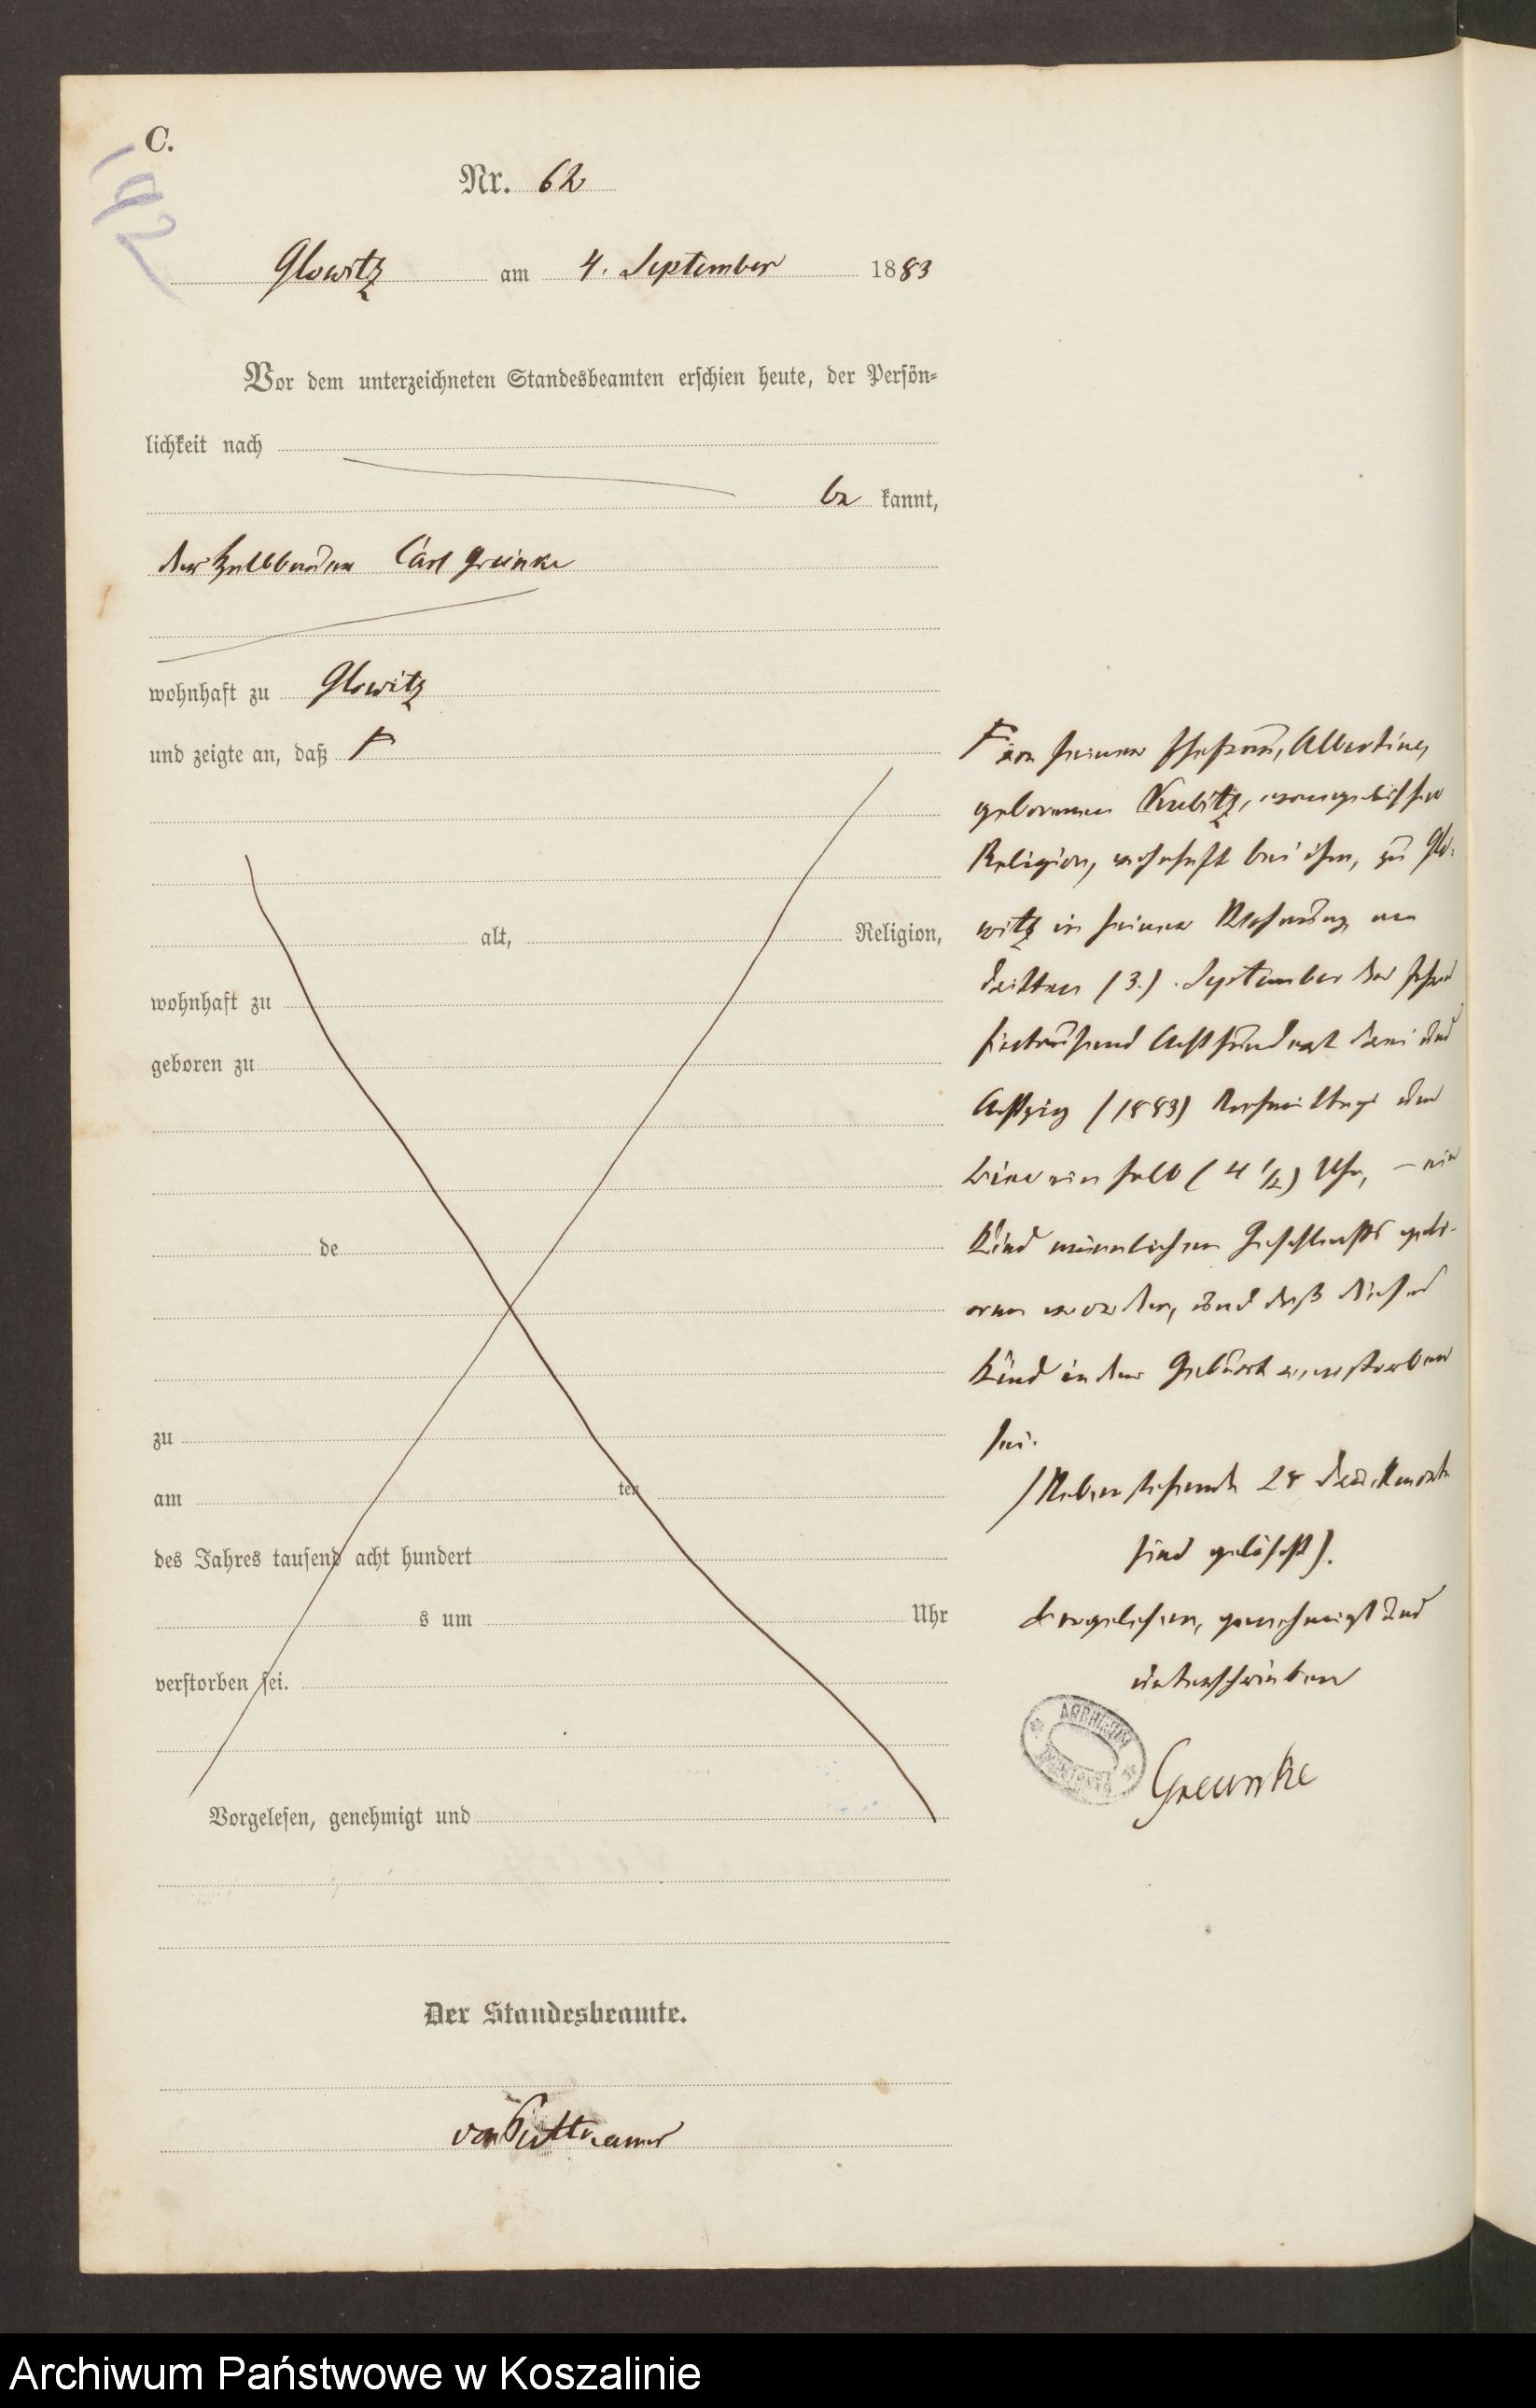 C.
192
Nr. 62
Glowitz am 4. September 1883
Vor dem unterzeichneten Standesbeamten erschien heute, der Persön-
lichkeit nach
be kannt,
der Halbbauer Carl Greinke
wohnhaft zu Glowitz
und zeigte an, daß F
alt, Religion,
wohnhaft zu
geboren zu
de
zu
am ten
des Jahres tausend acht hundert
s um Uhr
verstorben sei.
Vorgelesen, genehmigt und
F von seiner Ehefrau, Albertine,
geborenen Kubitz, evangelischer
Religion, wohnhaft bei ihm, zu Glo-
witz in seiner Wohnung am
dritten (3.) September des Jahres
eintausend Achthundert drei und
Achtzig (1883) Nachmittags um
vier ein halb (4 1/2) Uhr, – ein
Kind männlichen Geschlechts geb-
oren worden, und daß dieses
Kind in der Geburt verstorben
sei.
(Nebenstehende 28 Druckworte
sind gelöscht).
Vorgelesen, genehmigt und
unterschrieben
ARCHIWUM
Greunke
Der Standesbeamte.
von Puttkamer
Archiwum Państwowe w Koszalinie